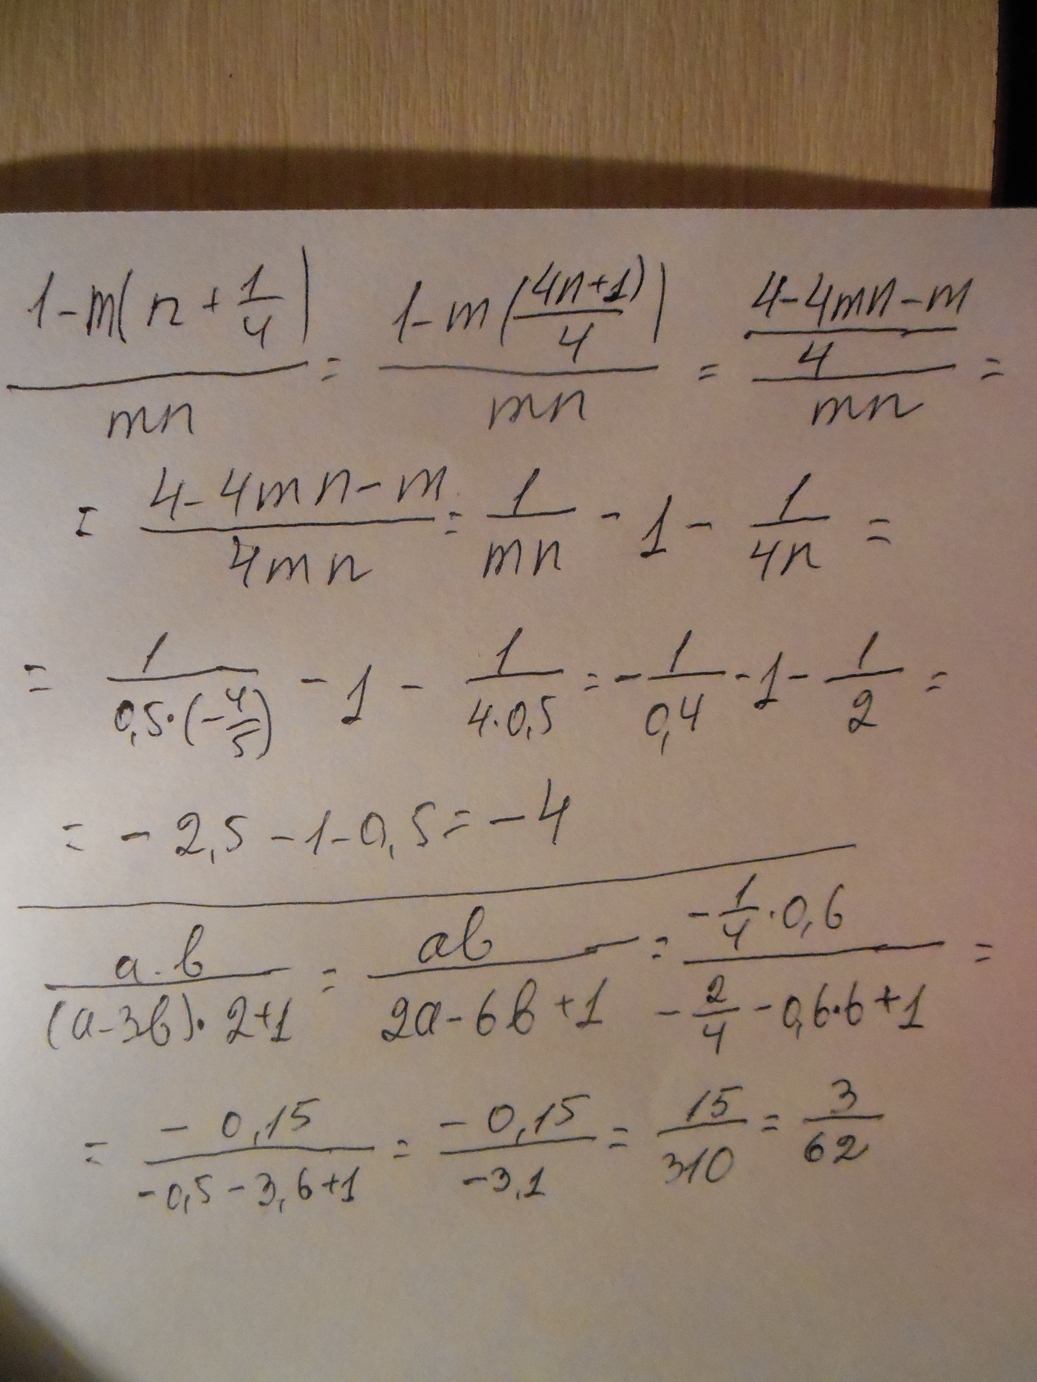 (1-m(n+1/4))/mn = (1-m((4n+1)/4))/mn = ((4-4mn-m)/4)/mn =
= (4-4mn-m)/4mn = 1/mn - 1 - 1/4n =
= 1/(0,5·(-4/5)) - 1 - 1/(4·0,5) = -1/0,4 - 1 - 1/2 =
= -2,5-1-0,5 = -4
a·b/((a-3b)·2+1) = ab/(2a-6b+1) = (-1/4·0,6)/(-2/4-0,6·6+1) =
= -0,15/(-0,5-3,6+1) = -0,15/-3,1 = 15/310 = 3/62